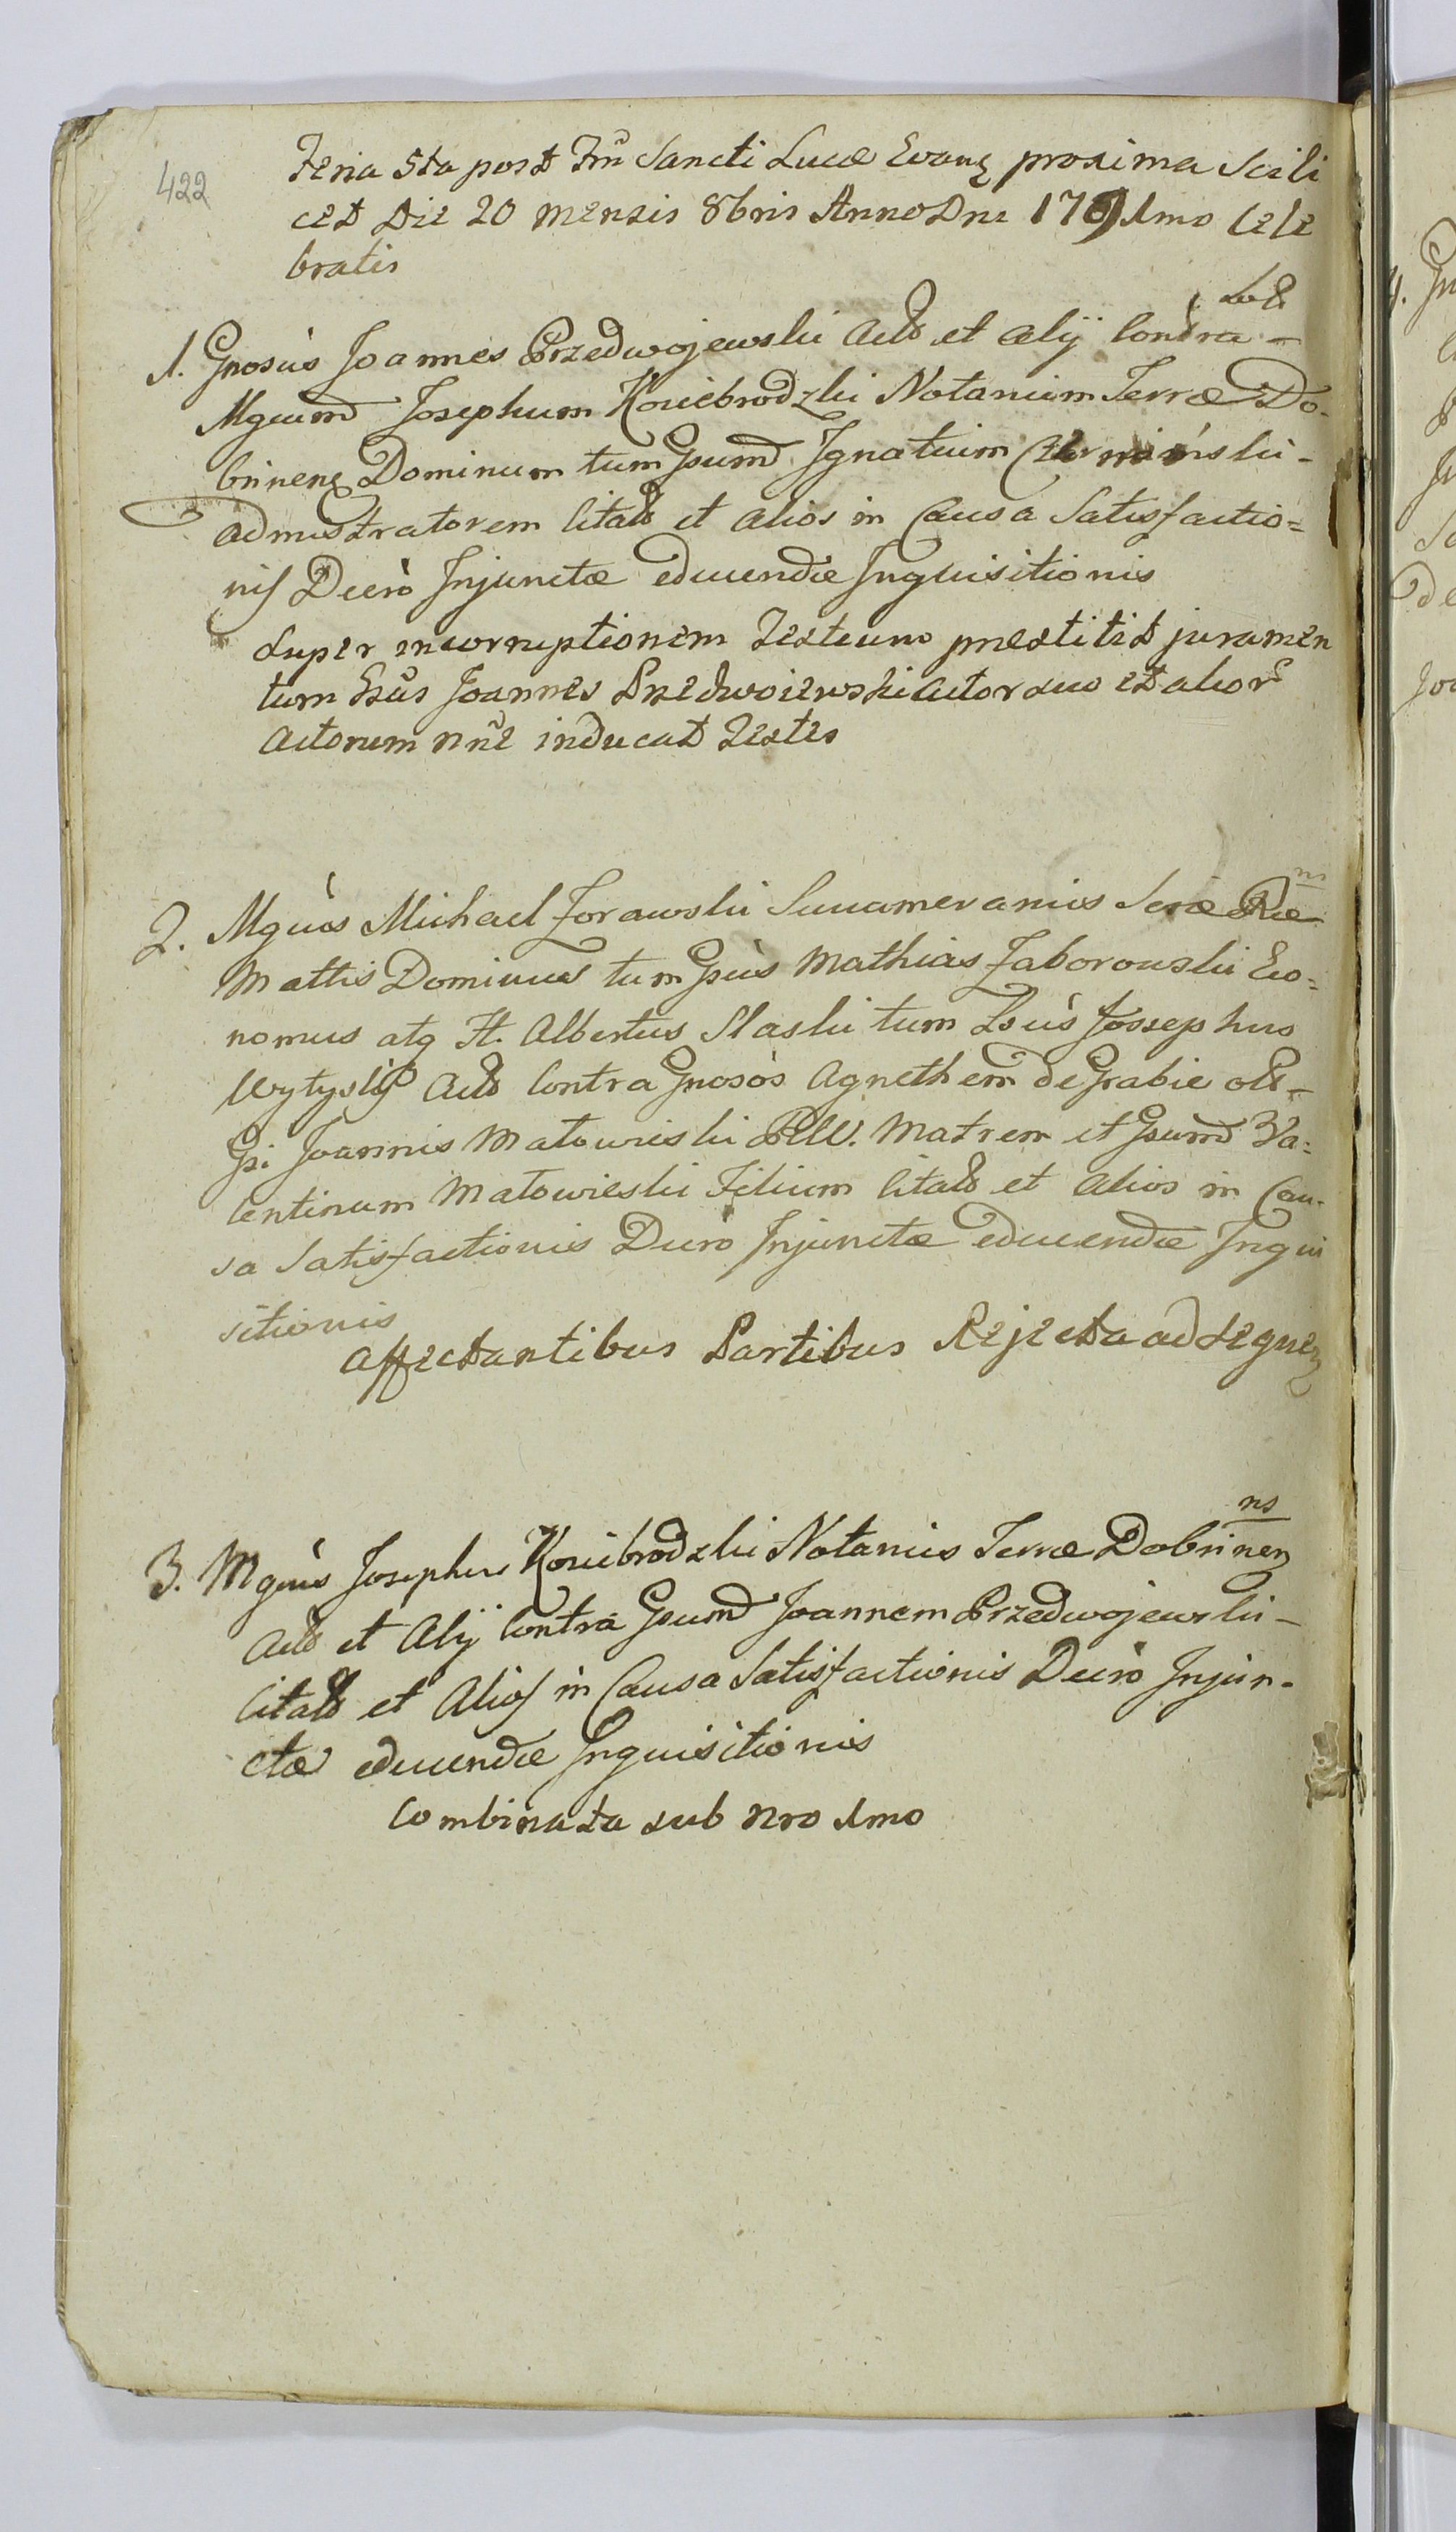 422
Feria 5ta post Fm̃ Sancti Lucæ Evang proxima Scili
cet Die 20 mensis 8bris Anno Dni 1791mo Cele
bratis
1. Gnosùs Joannes Przedwojewski Actt et alÿ Contra –
Mgcumd Josephum Koziebrodzki Notarium Terræ Do-
brinens Dominum tum Gsumd Ignatium
admistratorem Citatt et alios in Causa Satisfactio=
nis Decrò Injunctæ educendæ Inquisitionis
Super incorruptionem Testium prestitit juramen
tum Gsũs Joannes Przedwoiewski actor suo et alior
actorum nñe inducat Testes
ns
2. Mgcùs Michael Zorawski Succamerarius Scræ Ræ
Mattis Dominus tum Gsùs Mathias Zaborowski Eco=
nomus atq Ft. Albertus Slaski tum Josephus
Actt Contra Gnosòs Agnethem de Grabie olt –
Gsi Joannis Matowieski Matrem et Gsumd Va=
lentinum Matowieski Filium Citatt et alios in Cau-
sa Satisfactionis Decrò Injunctæ educendæ Inqui
sitionis
affectantibus Partibus Rejecta ad sequen
ns
3. Mgcùs Josephus Koziebrodzki Notarius Terræ Dobrinen
Actt et Alÿ Contra Gsumd Joannem Przedwojewski –
Citatt et Alios in Causa Satisfactionis Decrò Injun-
ctæ educendæ Inquisitionis
Combinata sub Nro 1mo